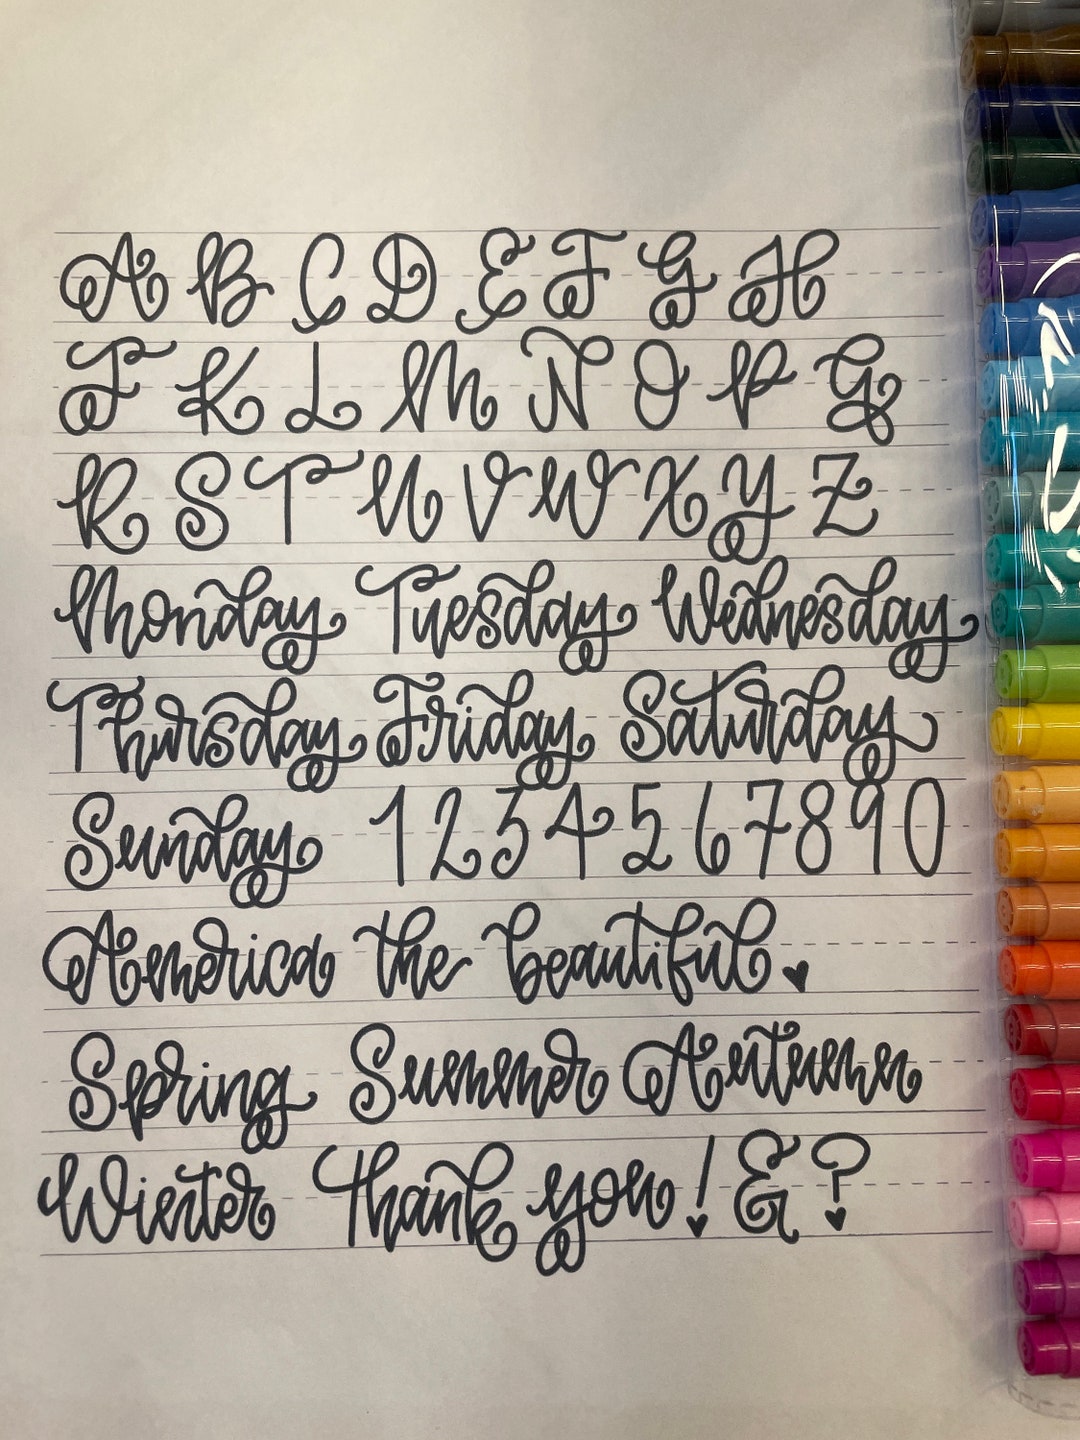 A B C D E F G H
J K L M N O P Q
R S T U V W X Y Z
Monday Tuesday Wednesday
Thursday Friday Saturday
Sunday 1 2 3 4 5 6 7 8 9 0
America the beautiful
Spring Summer Autumn
Winter thank you! & ?